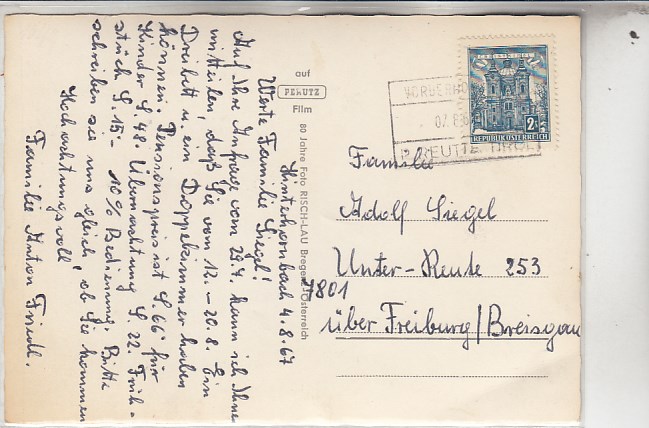 Hinterhornbach 4.8.67
Werte Familie Siegel!
Auf Ihre Anfrage vom 29.7. kann ich Ihne
mitteilen, daß Sie vom 12.-20.8. Ein
Dreibett u. ein Doppelzimmer haben
können. Pensionspreis ist S. 66 für
Kinder S. 48. Übernachtung S 22. Früh-
stück S. 15- 10% Bedienung. Bitte
schreiben sie uns gleich, ob Sie kommen
Hochachtungsvoll
Familie Anton Friedl.
auf
PERUTZ
Film
80 Jahre Foto RISCH-LAU Bregenz Österreich
2S
REPUBLIK ÖSTERREICH
VORDERHO
07.8.6
REUTTE TIROL
Familie
Adolf Siegel
Unter-Reute 253
7801
über Freiburg/Breisgau